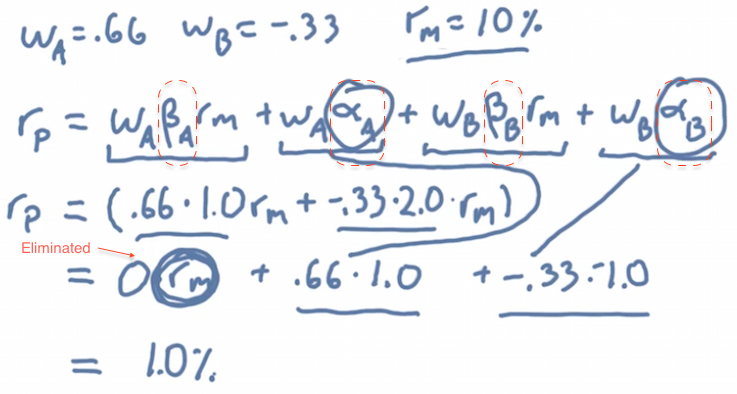 w_A = .66 w_B = -.33 r_m = 10%
r_p = w_A β_A r_m + w_A α_A + w_B β_B r_m + w_B α_B
r_p = (.66 · 1.0 r_m + -.33 · 2.0 · r_m)
Eliminated
= 0 r_m + .66 · 1.0 + -.33 · -1.0
= 1.0%